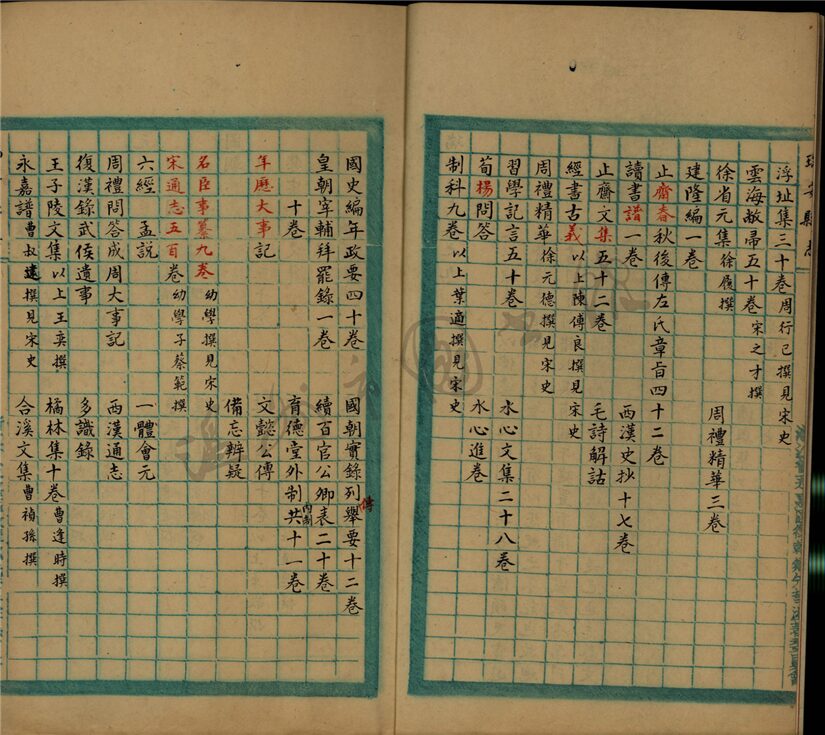 瑞安縣志
浮沚集三十卷周行己撰見宋史
雲海敝帚五十卷宋之才撰
徐省元集徐履撰 周禮精華三卷
建隆編一卷
止齋春秋後傳左氏章旨四十二卷
讀書譜一卷 西漢史抄十七卷
止齋文集五十二卷 毛詩解詁
經書古義以上陳傅良撰見宋史
周禮精華徐元德撰見宋史
習學記言五十卷 水心文集二十八卷
荀楊問答 水心進卷
制科九卷以上葉適撰見宋史
國史編年政要四十卷 國朝實錄列舉要十二卷
傳
皇朝宰輔拜罷錄一卷 續百官公卿表二十卷
十卷 育德堂外制內制共十一卷
年歷大事記 文懿公傳
備忘辨疑
名臣事纂九卷幼學撰見宋史
宋通志五百卷幼學子蔡範撰
六經孟說 一體會元
周禮問答成周大事記 西漢通志
復漢錄武侯遺事 多識錄
王子陵文集以上王奕撰 橘林集十卷曹逢時撰
永嘉譜曹叔遠撰見宋史 合溪文集曹禎孫撰